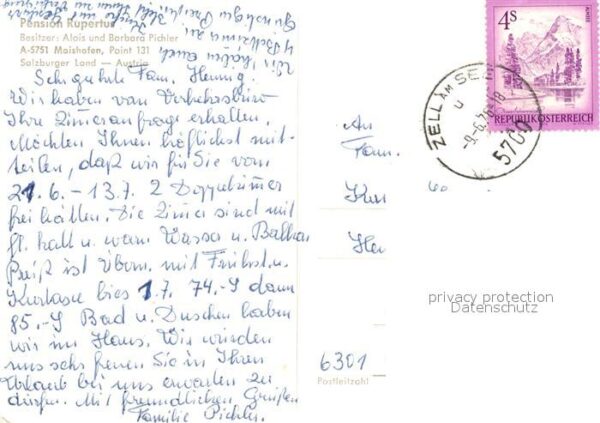 Pension Rupertus
Besitzer: Alois und Barbara Pichler
A-5751 Maishofen, Point 131
Salzburger Land — Austria
Sehr geehrte Fam. Hennig.
Wir haben vom Verkehrsbüro
Ihre Zimeranfrage erhalten.
Möchten Ihnen höflichst mit-
teilen, daß wir für Sie vom
21.6. – 13.7. 2 Doppelzimer
frei hätten. Die Zimer sind mit
fl. kalt u. warm Wasser u. Balkon
Preiß ist Übern. mit Frühst. u.
Kurtaxe bies 1.7. 74.-S dann
85.-S Bad u. Duschen haben
wir im Haus. Wir würden
uns sehr freuen Sie in Ihren
Urlaub bei uns erwarten zu
dürfen. Mit freundlichen Grüßen
Familie Pichler.
Wir haben auch
4 Bettzimer zu
An
Fam.
6301
Postleitzahl
4S
REPUBLIK ÖSTERREICH
ZELL AM SEE
5700
privacy protection
Datenschutz